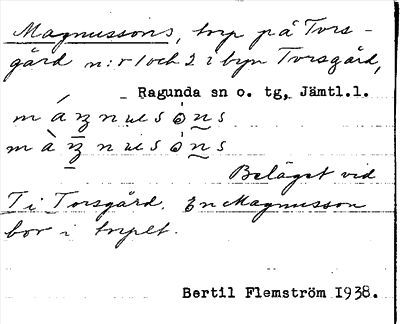 Magnussons, torp på Tors-
gård n:r 1 och 2 i byn Torsgård,
Ragunda sn o. tg, Jämtl.l.
Beläget vid
T i Torsgård. En Magnusson
bor i torpet.
Bertil Flemström 1938.